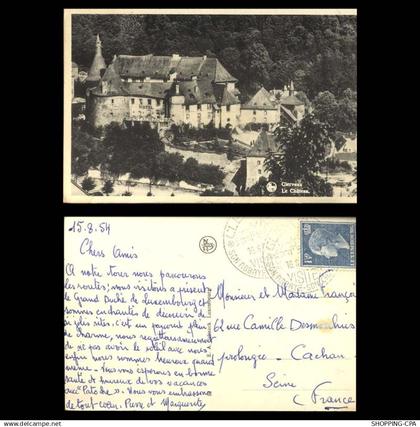 HOTEL
Clervaux
Le Château
15.8.54
Chers Amis
A notre tour nous parcourons
les routes; nous visitons à présent
le Grand Duché de Luxembourg et
sommes enchantés de
si jolis sites. c'est un pays plein
de charme, nous regrettons
de ne pas avoir le soleil avec nous.
enfin nous sommes heureux quand
même. Nous vous espérons en bonne
santé et heureux de vos vacances
avec "Patoche". Nous vous embrassons
de tout cœur. Pierre et Marguerite
Monsieur et Madame
62 rue Camille Desmoulins
prolongée. Cachan
Seine
(France)